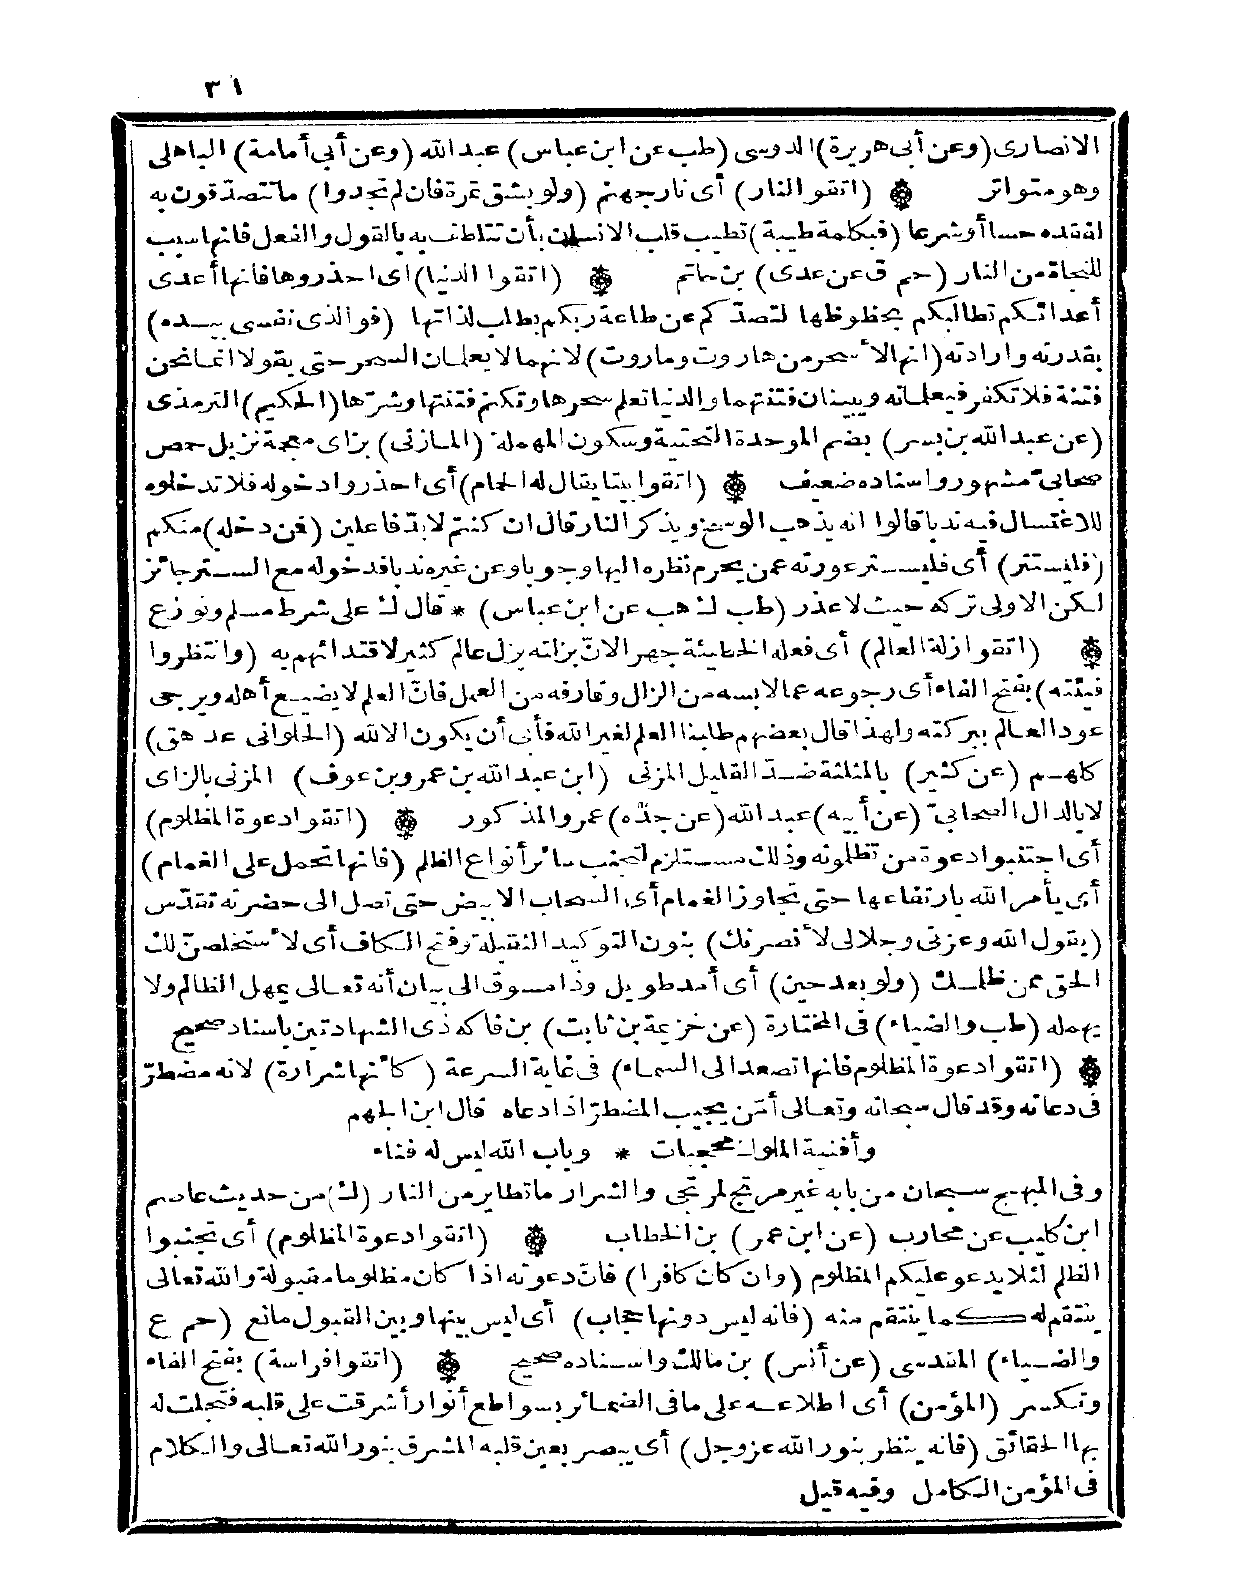 ٣١
الانصارى (وعن أبى هريرة) الدوسى (طب عن ابن عباس) عبد الله (وعن أبى أمامة) الباهلى
وهو متواتر (اتقو النار) أى نار جهنم (ولو بشق تمرة فان لم تجدوا) ما تتصدّقون به
لفقده حسا أو شرعا (فبكلمة طيبة) تطيب قلب الانسان بأن تتلطف به بالقول والفعل فانها سبب
للنجاة من النار (حم ق عن عدى) بن حاتم (اتقوا الدنيا) اى احذروها فانها أعدى
أعدائكم تطالبكم بحظوظها لتصدّكم عن طاعة ربكم بطلب لذاتها (فوالذى نفسى بيده)
بقدرته وارادته (انها لأسحر من هاروت وماروت) لانهما لا يعلمان السحر حتى يقولا انما نحن
فتنة فلا تكفر فيعلمانه ويبينان فتنتهما والدنيا تعلم سحرها وتكتم فتنتها وشرّها (الحكيم) الترمذى
(عن عبد الله بن بسر) بضم الموحدة التحتية وسكون المهملة (المازنى) بزاى معجمة نزيل حمص
صحابىّ مشهور واسناده ضعيف (اتقوا بيتا يقال له الحمام) أى احذروا دخوله فلا تدخلوه
للاغتسال فيه ندبا قالوا انه يذهب الوسخ ويذكر النار قال ان كنتم لابدّ فاعلين (فمن دخله) منكم
(فليستتر) أى فليستر عورته عمن يحرم نظره اليها وجوبا وعن غيره ندبا فدخوله مع الستر جائز
لكن الاولى تركه حيث لا عذر (طب ك هب عن ابن عباس) * قال ك على شرط مسلم ونوزع
(اتقوا زلة العالم) أى فعله الخطيئة جهرا لانّ بزلته يزل عالم كثير لاقتدائهم به (وانتظروا
فيئته) بفتح الفاء أى رجوعه عما لابسه من الزلل وقارفه من العمل فانّ العلم لا يضيع أهله ويرجى
عود العالم ببركته ولهذا قال بعضهم طلبنا العلم لغير الله فأبى أن يكون الا لله (الحلوانى عد هق)
كلهم (عن كثير) بالمثلثة ضدّ القليل المزنى (ابن عبد الله بن عمرو بن عوف) المزنى بالزاى
لا بالدال الصحابىّ (عن أبيه) عبد الله (عن جدّه) عمرو المذكور (اتقوا دعوة المظلوم)
أى اجتنبوا دعوة من تظلمونه وذلك مستلزم لتجنب سائر أنواع الظلم (فانها تحمل على الغمام)
أى يأمر الله بارتفاعها حتى تجاوز الغمام أى السحاب الابيض حتى تصل الى حضرته تقدّس
(يقول الله وعزتى وجلالى لأنصرنك) بنون التوكيد الثقيلة وفتح الكاف أى لأستخلصنّ لك
الحق ممن ظلمك (ولو بعد حين) أى أمد طويل وذا مسوق الى بيان أنه تعالى يمهل الظالم ولا
يهمله (طب والضياء) فى المختارة (عن خزيمة بن ثابت) بن فاكه ذى الشهادتين باسناد صحيح
(اتقوا دعوة المظلوم فانها تصعد الى السماء) فى غاية السرعة (كأنها شرارة) لانه مضطرّ
فى دعائه وقد قال سبحانه وتعالى أمّن يجيب المضطرّ اذا دعاه قال ابن الجهم
وأفنية الملوك محجبات * وباب الله ليس له فناء
وفى المبهج سبحان من بابه غير مرتج لمرتجى والشرار ما تطاير من النار (ك) من حديث عاصم
ابن كليب عن محارب (عن ابن عمر) بن الخطاب (اتقوا دعوة المظلوم) أى تجنبوا
الظلم لئلا يدعو عليكم المظلوم (وان كان كافرا) فانّ دعوته اذا كان مظلوما مقبولة والله تعالى
ينتقم له كما ينتقم منه (فانه ليس دونها حجاب) أى ليس بينها وبين القبول مانع (حم ع
والضياء) المقدسى (عن أنس) بن مالك واسناده صحيح (اتقوا فراسة) بفتح الفاء
وتكسر (المؤمن) أى اطلاعه على ما فى الضمائر بسواطع أنوار أشرقت على قلبه فتجلت له
بها الحقائق (فانه ينظر بنور الله عز وجل) أى يبصر بعين قلبه المشرق بنور الله تعالى والكلام
فى المؤمن الكامل وفيه قيل